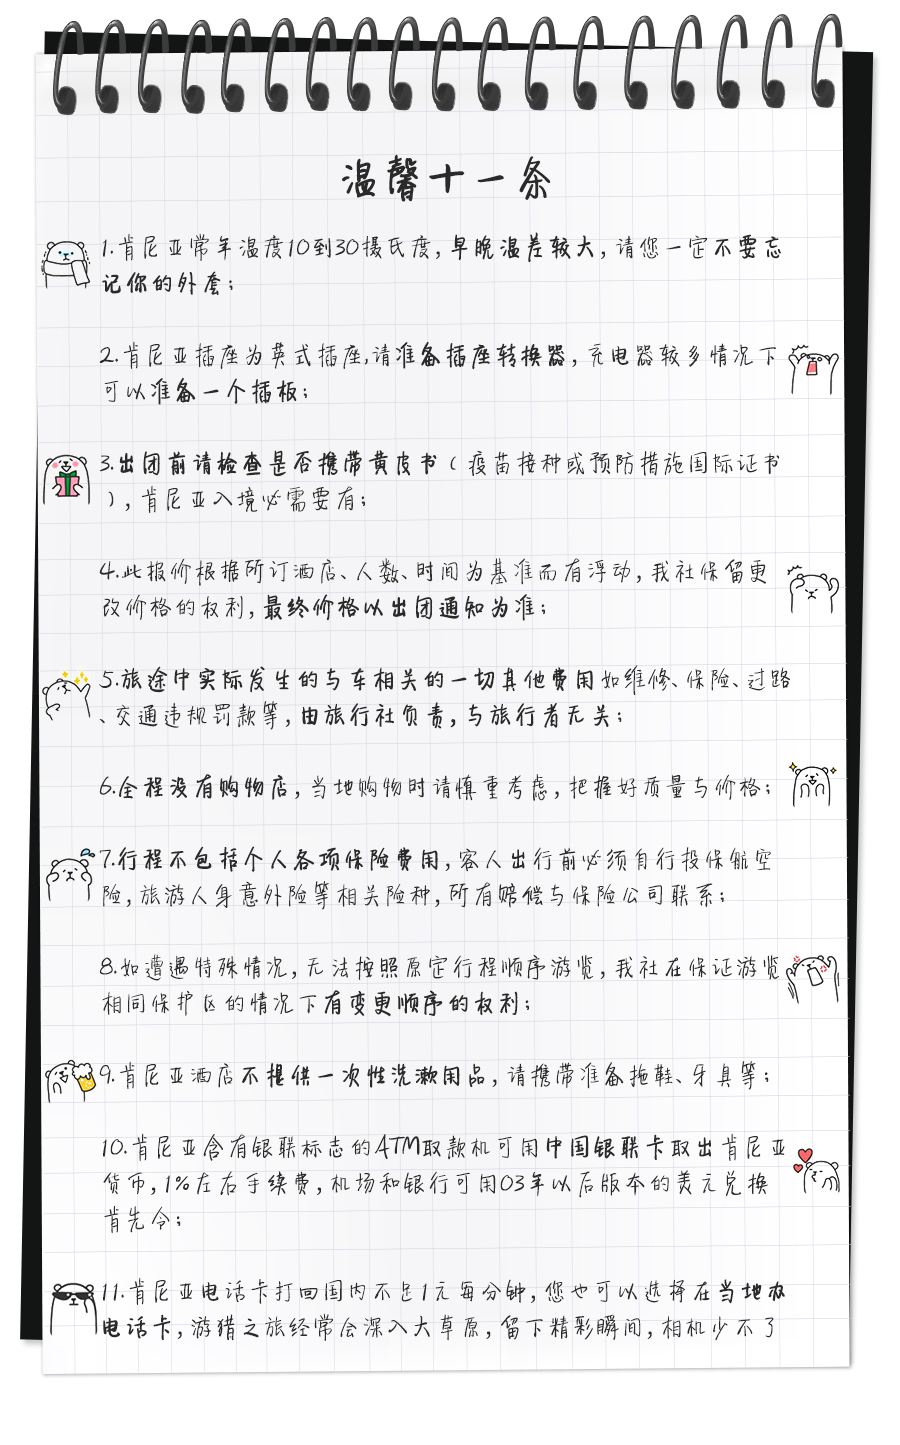 温馨十一条
1.肯尼亚常年温度10到30摄氏度,早晚温差较大,请您一定不要忘
记你的外套;
2.肯尼亚插座为英式插座,请准备插座转换器,充电器较多情况下
可以准备一个插板;
3.出团前请检查是否携带黄皮书(疫苗接种或预防措施国际证书
),肯尼亚入境必需要有;
4.此报价根据所订酒店、人数、时间为基准而有浮动,我社保留更
改价格的权利,最终价格以出团通知为准;
5.旅途中实际发生的与车相关的一切其他费用如维修、保险、过路
、交通违规罚款等,由旅行社负责,与旅行者无关;
6.全程没有购物店,当地购物时请慎重考虑,把握好质量与价格;
7.行程不包括个人各项保险费用,客人出行前必须自行投保航空
险,旅游人身意外险等相关险种,所有赔偿与保险公司联系;
8.如遭遇特殊情况,无法按照原定行程顺序游览,我社在保证游览
相同保护区的情况下有变更顺序的权利;
9.肯尼亚酒店不提供一次性洗漱用品,请携带准备拖鞋、牙具等;
10.肯尼亚含有银联标志的ATM取款机可用中国银联卡取出肯尼亚
货币,1%左右手续费,机场和银行可用03年以后版本的美元兑换
肯先令;
11.肯尼亚电话卡打回国内不足1元每分钟,您也可以选择在当地办
电话卡,游猎之旅经常会深入大草原,留下精彩瞬间,相机少不了